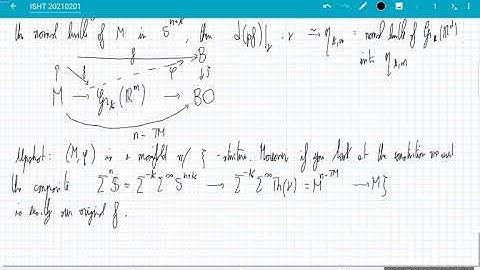 ISHT 20210201
the normal bundle of M in S^{n+k}, then d(pf)|_ν : ν ≃ η_{k,m} = normal bundle of Gr_k(ℝ^m)
into η_{k,m}
f B
φ ↓ξ
M → Gr_k(ℝ^m) → BO
n-TM
Upshot: (M,φ) is a manifold w/ ξ-structure. Moreover if you look at the construction
the composite Σ^n 𝕊 = Σ^{-k} Σ^∞ S^{n+k} → Σ^{-k} Σ^∞ Th(ν) = M^{n-TM} → Mξ
is our original f.